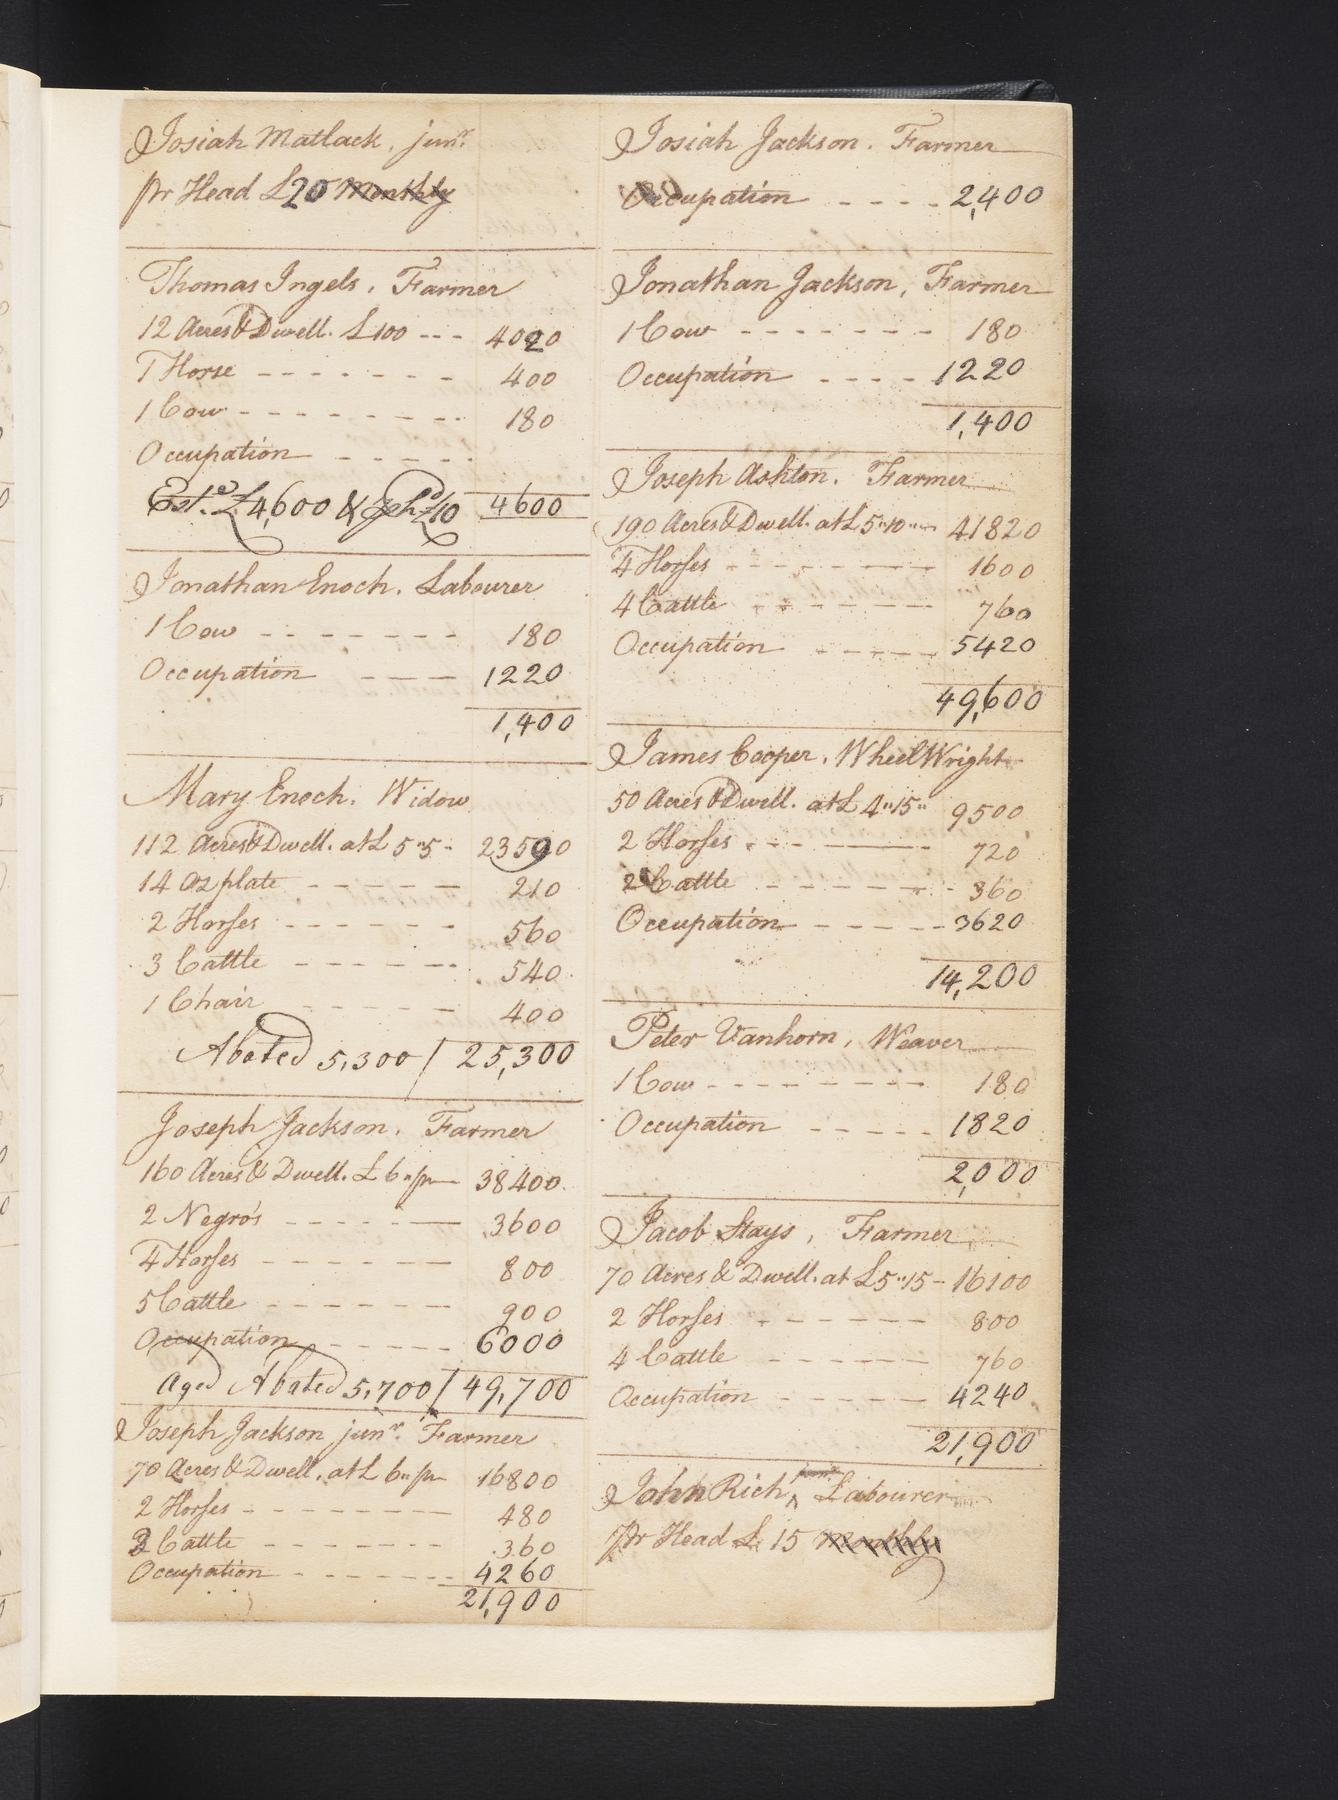 Josiah Matlack, junr.
pr Head £20 Monthly
Thomas Ingels, Farmer
12 Acres & Dwell. £100 --- 4020
1 Horse - - - - - - - 400
1 Cow - - - - - - - - 180
Occupation - - - - -
Estd. £4,600 & £10 4600
Jonathan Enoch. Labourer
1 Cow - - - - - - - 180
Occupation - - - - 1220
1,400
Mary Enoch. Widow
112 Acres & Dwell. at £ 5"5 - 23590
14 oz plate - - - - - 210
2 Horses - - - - - - 560
3 Cattle - - - - - - 540
1 Chair - - - - - 400
Abated 5,300 / 25,300
Joseph Jackson. Farmer
160 Acres & Dwell. £ 6 " pr 38400
2 Negro's - - - - - 3600
4 Horses - - - - - - 800
5 Cattle - - - - - - 900
Occupation - - - - - 6000
Aged Abated 5,700 / 49,700
Joseph Jackson junr. Farmer
70 Acres & Dwell. at £ 6 " pr 16800
2 Horses - - - - - - - 480
2 Cattle - - - - - - - 360
Occupation - - - - - - 4260
21,900
Josiah Jackson. Farmer
Occupation - - - - 2,400
Jonathan Jackson, Farmer
1 Cow - - - - - - - 180
Occupation - - - - 1220
1,400
Joseph Ashton. Farmer
190 Acres & Dwell. at £ 5"10" - 41820
4 Horses - - - - - - - 1600
4 Cattle - - - - - - 760
Occupation - - - - - 5420
49,600
James Cooper, WheelWright
50 Acres & Dwell. at £ 4"15" 9500
2 Horses - - - - - 720
2 Cattle - - - - - - 360
Occupation - - - - - 3620
14,200
Peter Vanhorn, Weaver
1 Cow - - - - - - - - 180
Occupation - - - - - 1820
2,000
Jacob Stays, Farmer
70 Acres & Dwell. at £5"15 - 16100
2 Horses - - - - - - 800
4 Cattle - - - - - - 760
Occupation - - - - - 4240
21,900
John Rich, Labourer
pr Head £ 15 Monthly